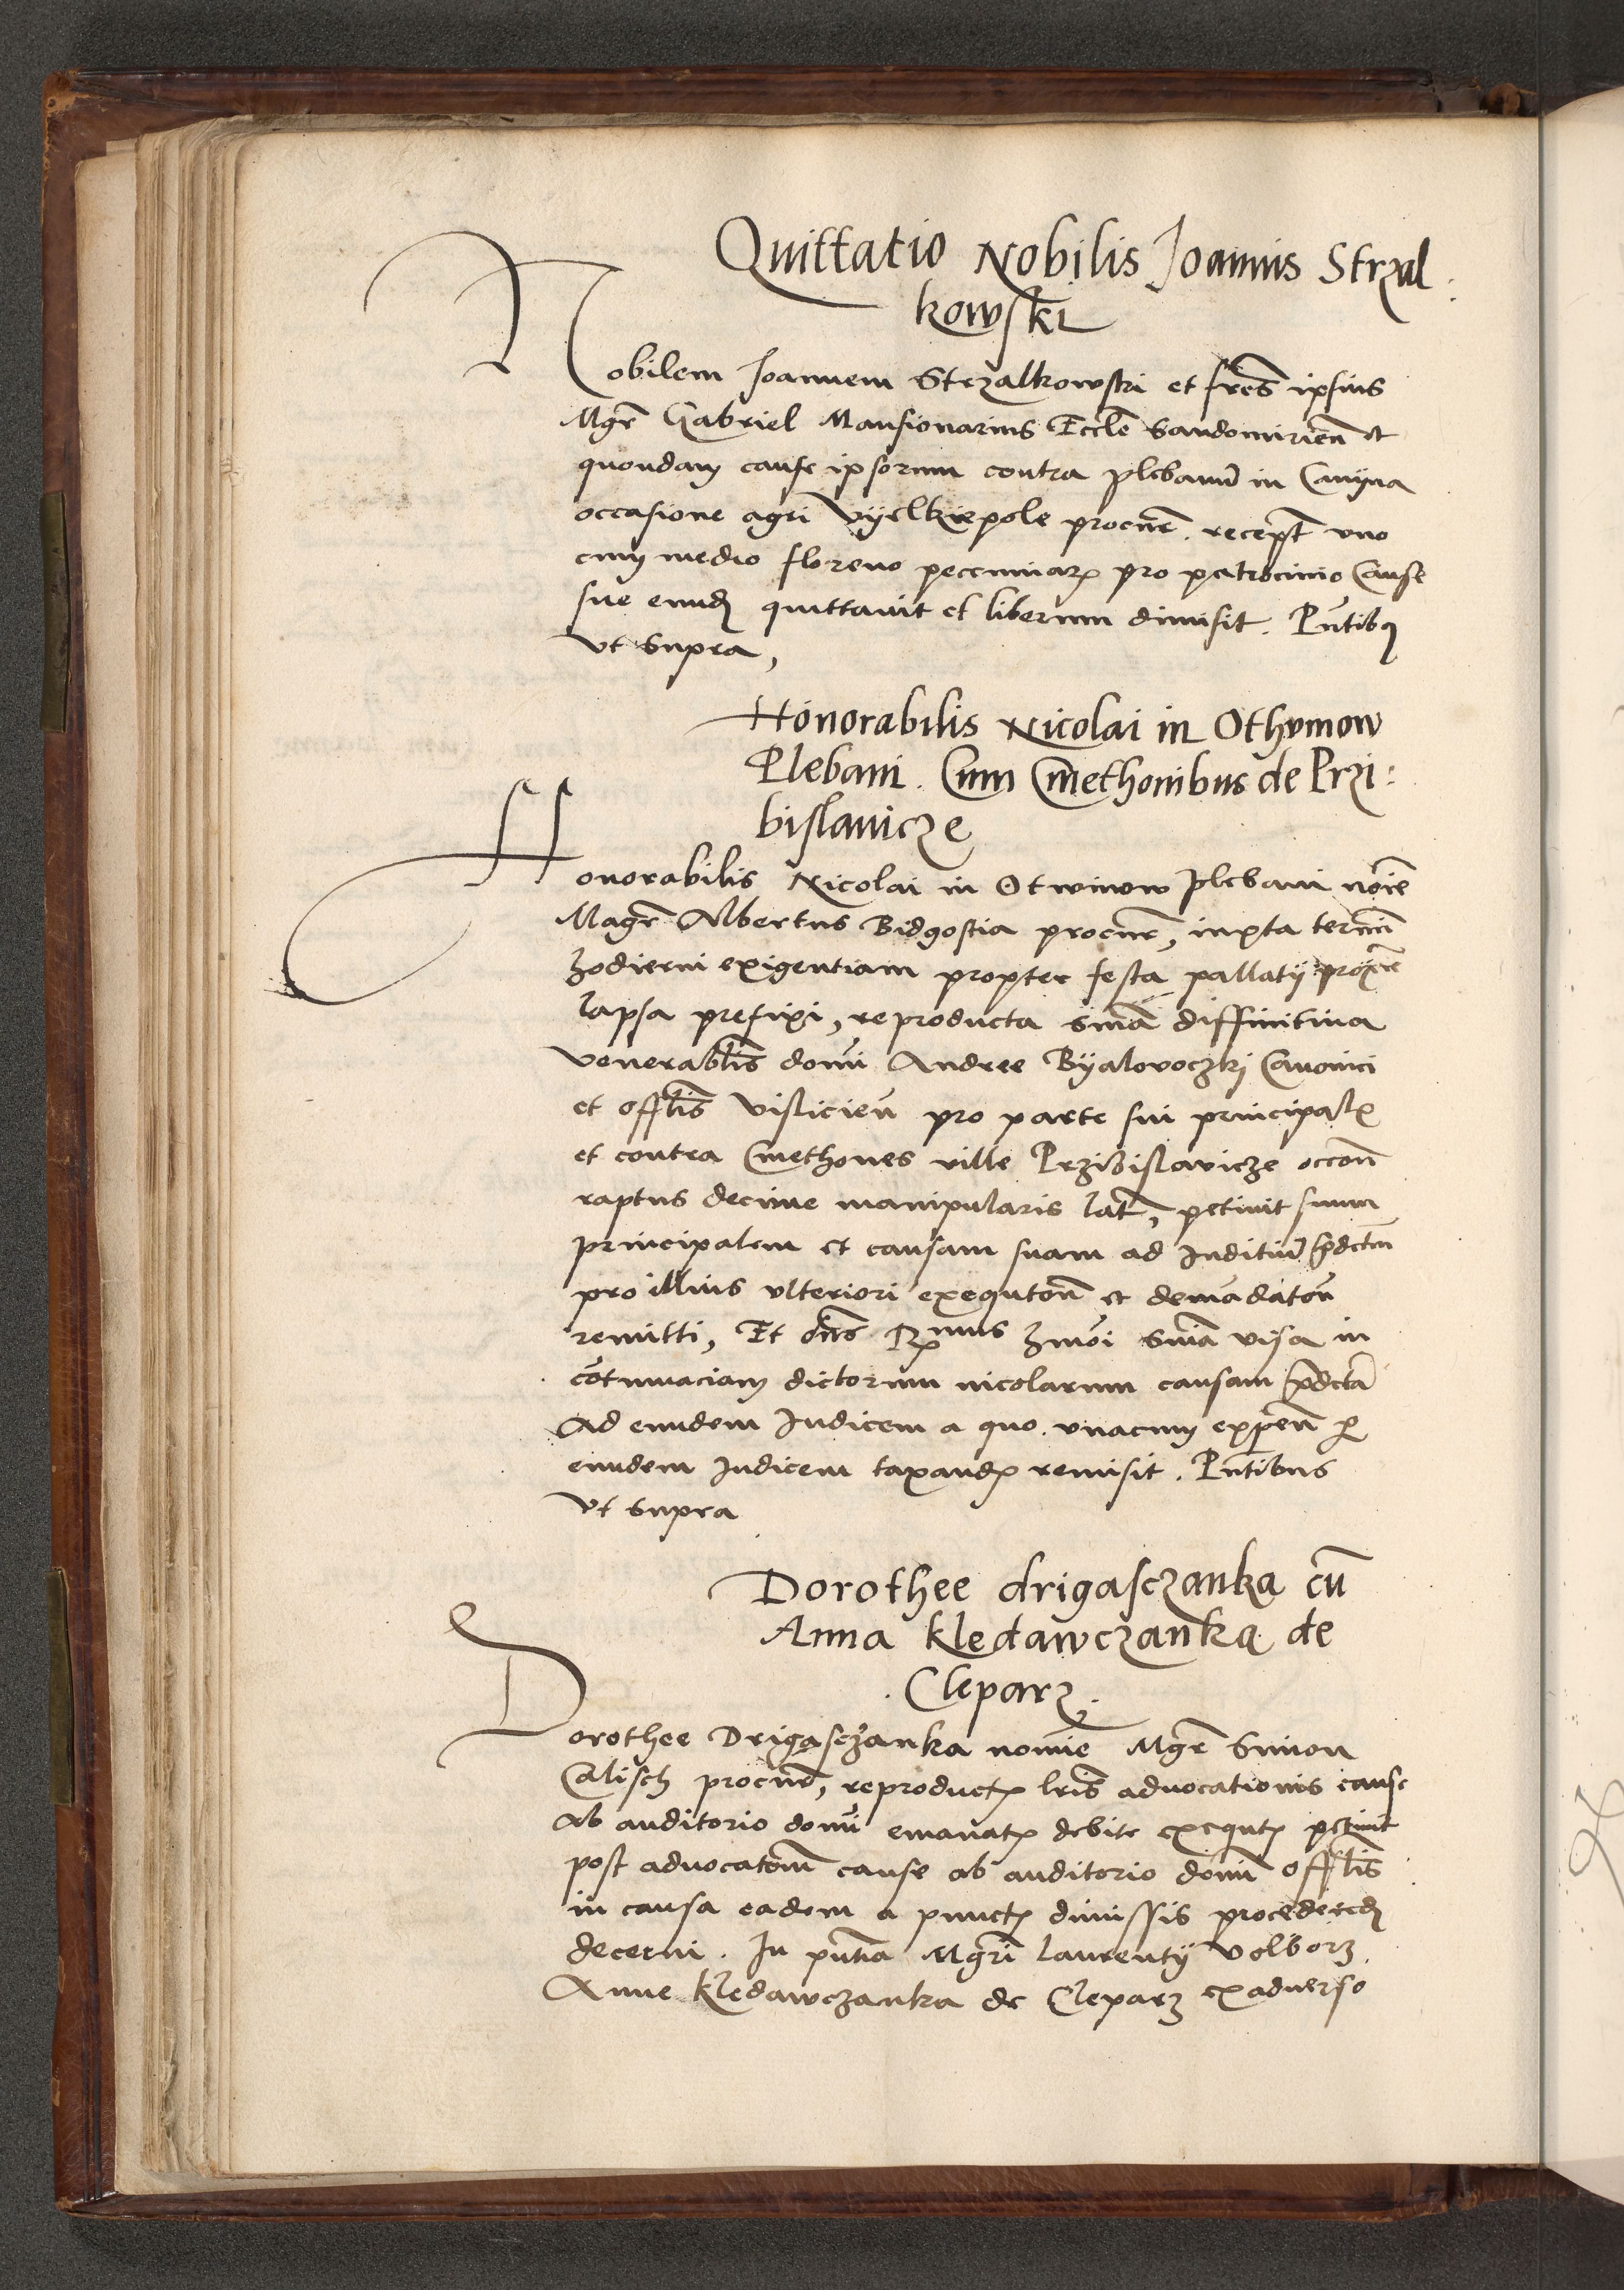 Quittatio Nobilis Joannis Strzal
kowski
Nobilem Joannem Strzalkowski et frēs ipsius
Mgr̄ Gabriel Mansionarius Eccl̄e Sandomirien̄ et
quondam cause ipsorum contra plebanū in
occasione agri Vyelkiepole procur̄. recept̄ uno
cum medio floreno peccuniar pro patrocinio Cause
sue eund quittavit et liberum dimisit. Pn̄tibq
vt supra,
Honorabilis Nicolai in Othvinow
Plebani. Cum Cmethonibus de Przi:
bislavicze
Honorabilis Nicolai in Otwinow plebani nōie
Magr̄ Albertus Bidgostia procur̄, iuxta termin̄
hodierni exigentiam propter festa pallatij
lapsa prefixi, reproducta sniā diffinitiva
venerabl̄is domī Andree Byalovoczki Canonici
et offl̄is Vislicien̄ pro parte sui principal
et contra Cmethones ville Przibislavicze occon̄
raptus decime manipularis lat̄, petivit suum
principalem et causam suam ad Juditiū p̄dctm
pro illius ulteriori exequtōn̄ et demādatōn̄
remitti, Et dn̄s Rmus hmōi sniā visa in
cōtumaciam dictorum incolarum causam p̄dctā
Ad eundem Judicem a quo. unacum expen̄ p
eundem Judicem taxand remisit. Pn̄tibus
Vt supra
Dorothee drigasczanka cū
Anna kledawczanka de
Cleparz.
Dorothee Drigasczanka nomīe Mgr̄ Simon
Calisch procur̄, reproduct lr̄is advocationis cause
Ab auditorio domī emanat debite exequt petivit
post advocatōm̄ cause ab auditorio domī offl̄is
in causa eadem a punct dimissis procedered
decerni. In pn̄tia Mgr̄i Laurentij Volborz
Anne kledawczanka de Cleparz exadverso